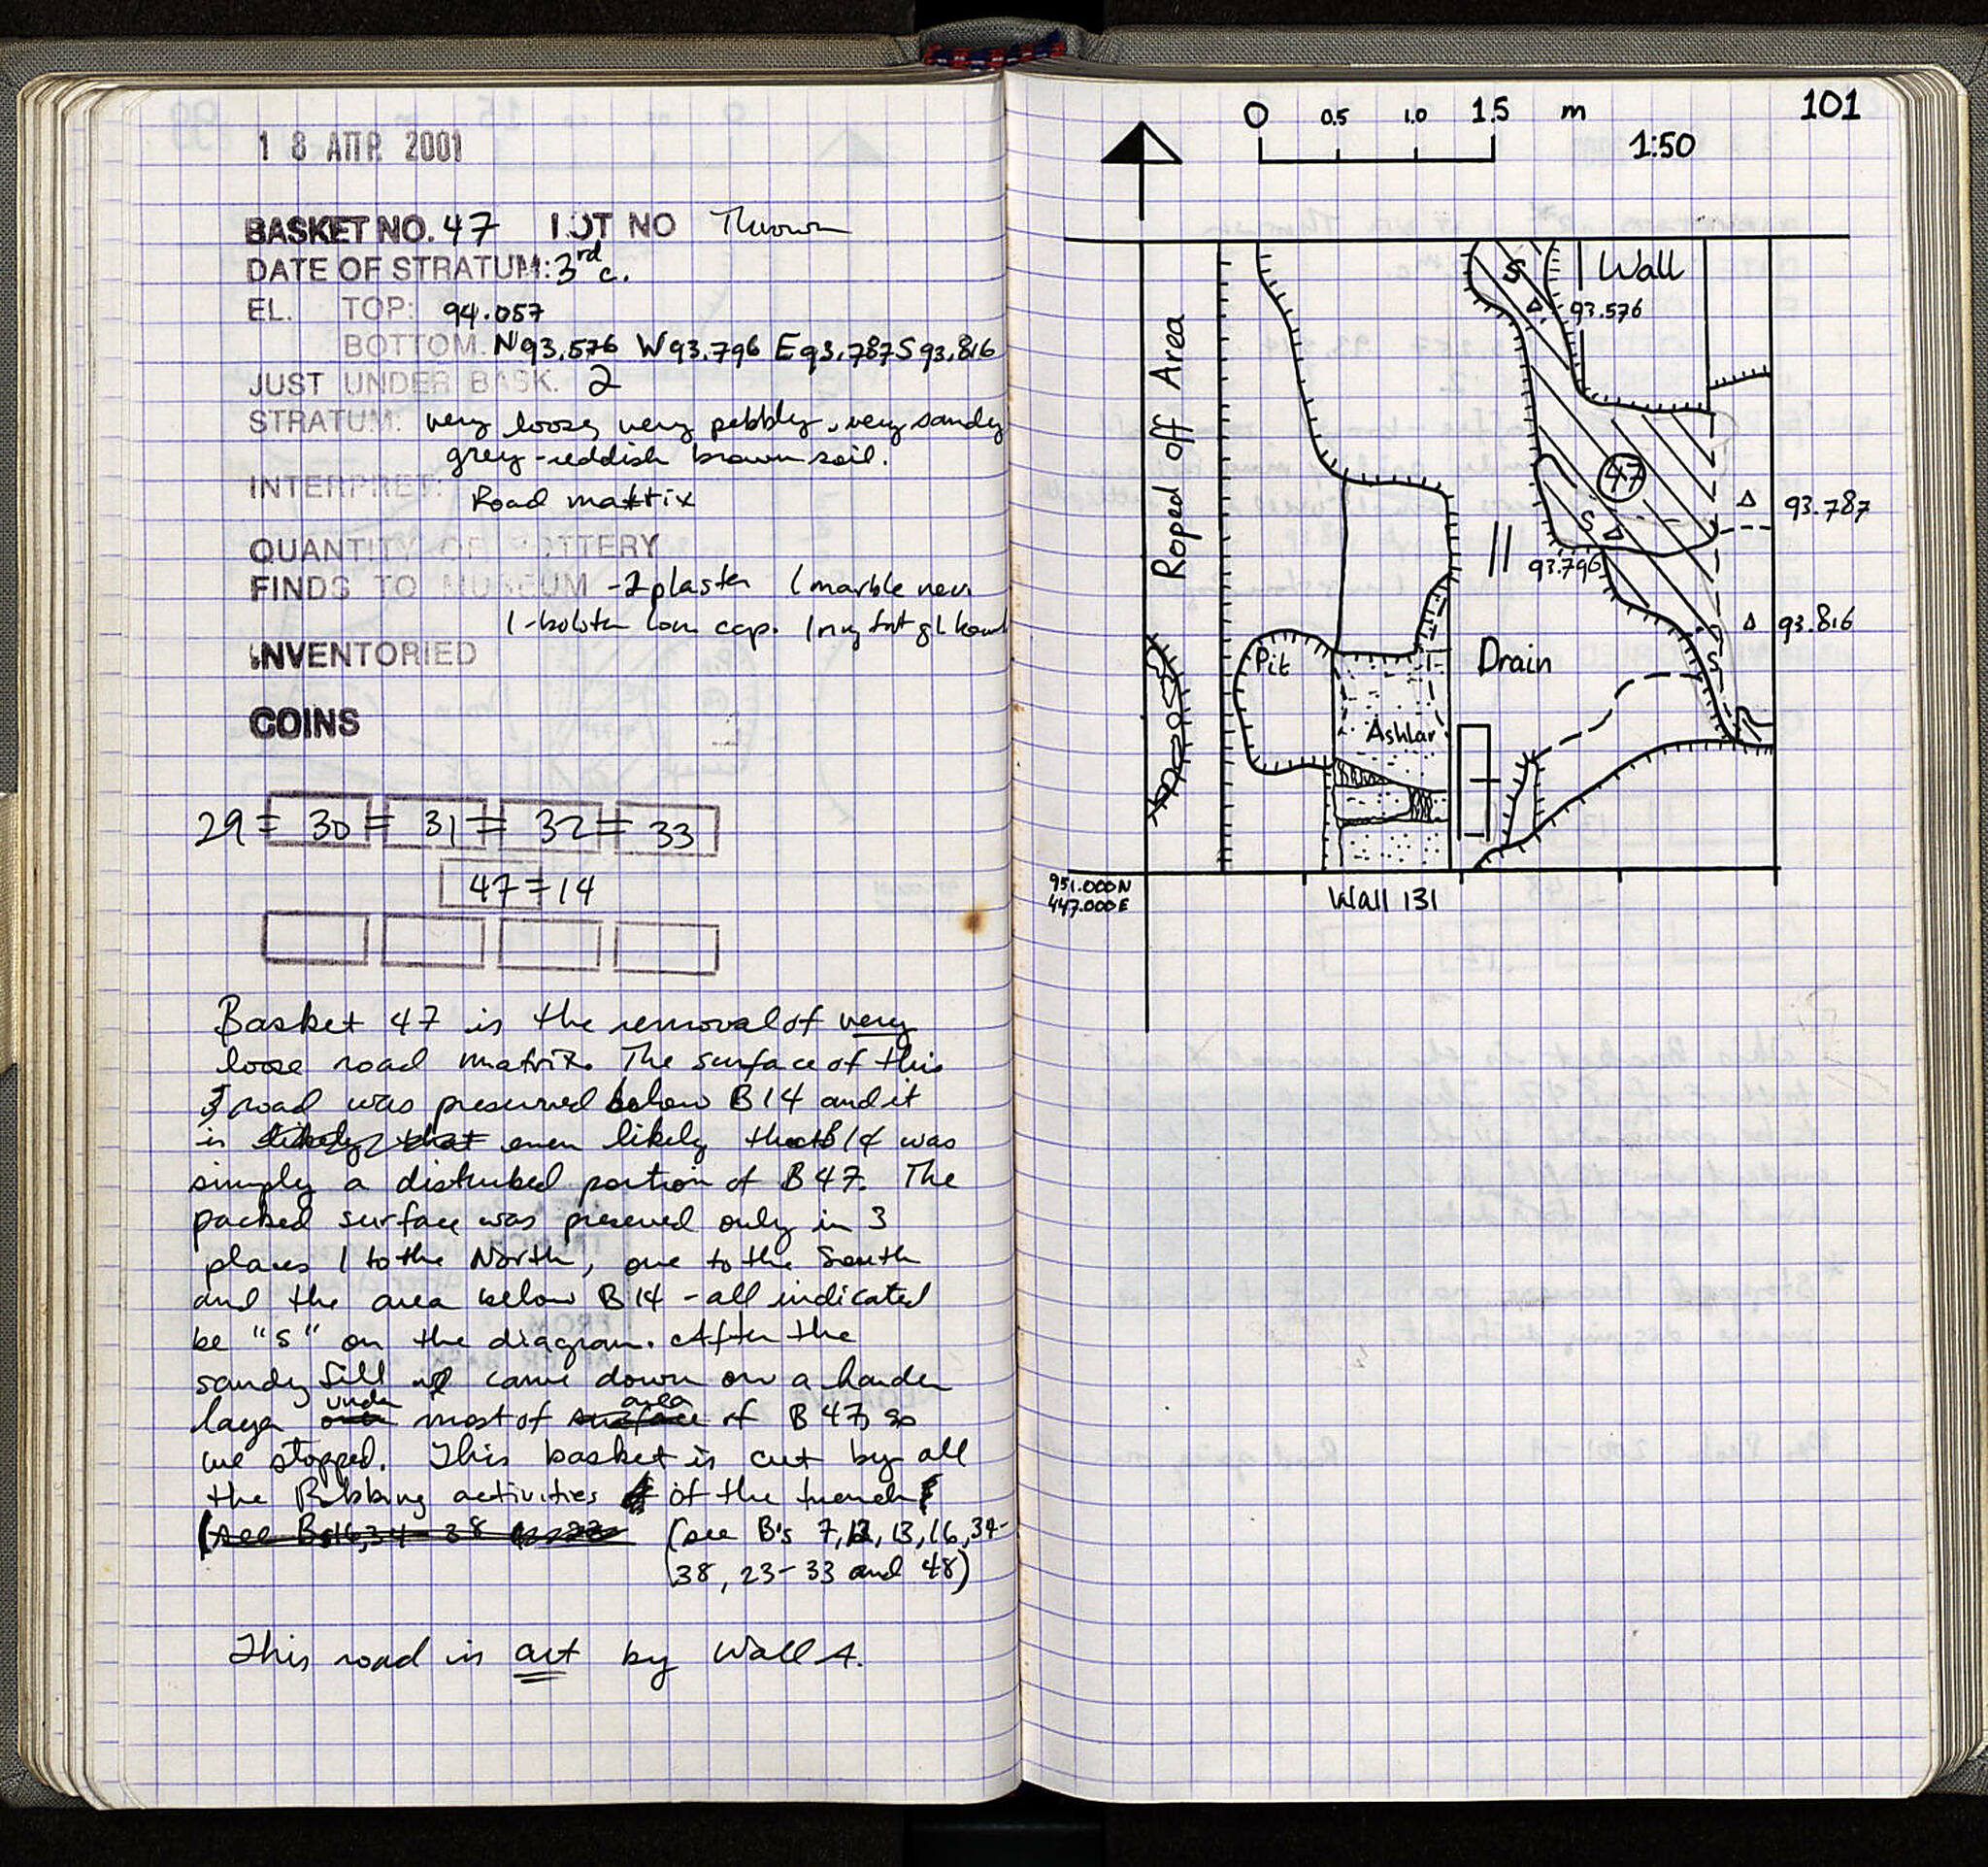 1 8 ΑΠΡ. 2001
BASKET NO. 47 LOT NO Thrown
DATE OF STRATUM: 3rd c.
EL. TOP: 94.057
BOTTOM: N93.576 W93.796 E93.787 S93.816
JUST UNDER BASK. 2
STRATUM: very loose, very pebbly, very sandy
grey-reddish brown soil.
INTERPRET: Road matrix
QUANTITY OF POTTERY
FINDS TO MUSEUM - 2 plaster 1 marble rev.
1 - cap. 1
INVENTORIED
COINS
29 = 30 = 31 = 32 = 33
47 = 14
Basket 47 is the removal of very
loose road matrix. The surface of this
road was preserved below B14 and it
is even likely that B14 was
simply a disturbed portion of B47. The
packed surface was preserved only in 3
places 1 to the North, one to the South
and the area below B14 - all indicated
be "S" on the diagram. After the
sandy fill came down on a harder
layer under most of area of B47, so
we stopped. This basket is cut by all
the Robbing activities of the trench
(see B's 7, 12, 13, 16, 34-
38, 23-33 and 48)
This road is cut by Wall A.
101
0 0.5 1.0 1.5 m
1:50
Roped off Area
S
Wall
93.576
47
S
93.787
93.796
93.816
S
Pit
Drain
Ashlar
951.000N
447.000E
Wall 131